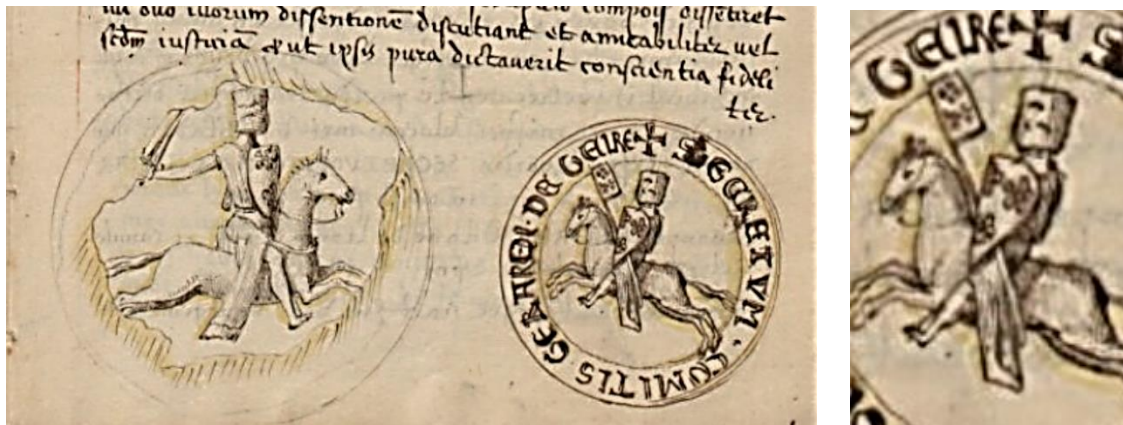 duo illorum dissentionē discutiant et amicabiliter vel
scdm̄ iusticiā & ut ipsis pura dictaverit conscientia fideli
ter.
✠ SECRETVM · COMITIS GERARDI · DE GELRE
GELRE ✠ S